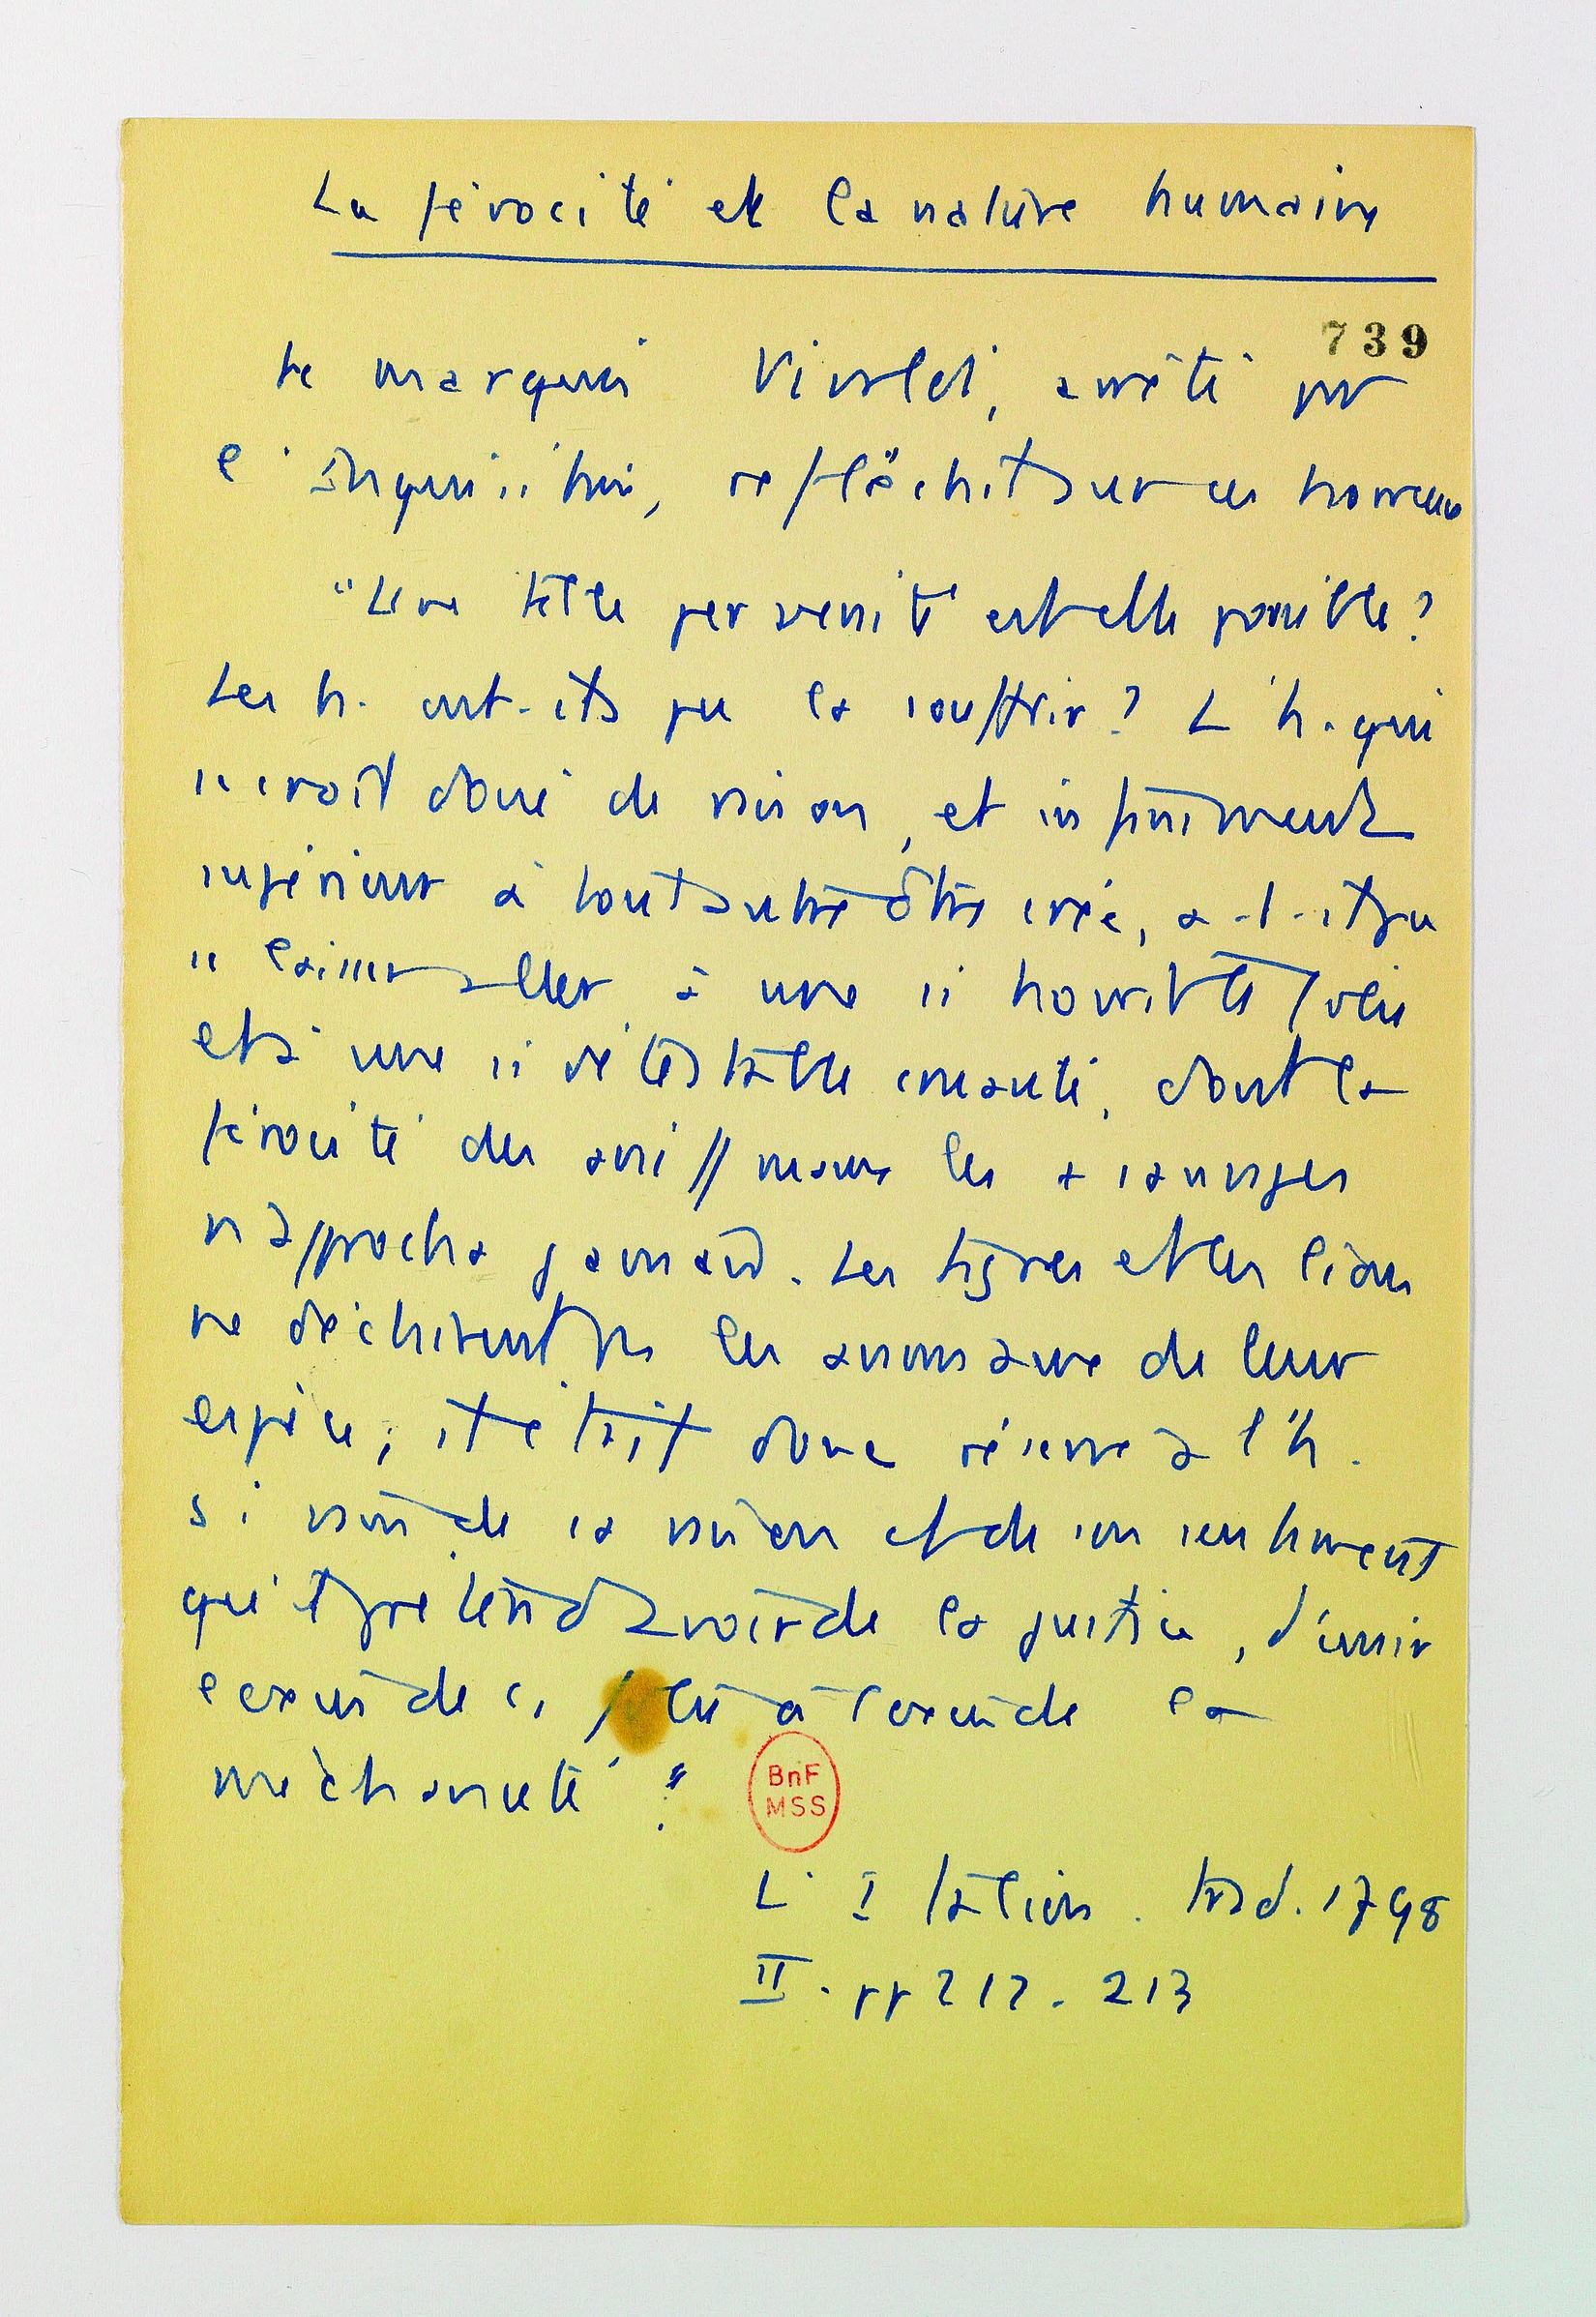 La férocité et la nature humaine
739
Le marquis Vivaldi, arrêté par
l'Inquisition, réfléchit sur ces horreurs
"Une telle perversité est elle possible?
Les h. ont-ils pu la souffrir? L'h. qui
se croit doué de raison, et infiniment
supérieur à tout autre être créé, a-t-il pu
se laisser aller à une si horrible folie
et à une si détestable cruauté, dont la
férocité des animaux les + sauvages
n'approcha jamais. Les tigres et les lions
ne déchirent pas les animaux de leur
espèce; il était donc réservé à l'h.
si vain de sa raison et de son sentiment
qu'il prétend avoir de la justice, d'unir
l'excès de la folie à l'excès de la
méchanceté!"
BnF
MSS
L'Italien. trad. 1798
II. pp 212-213